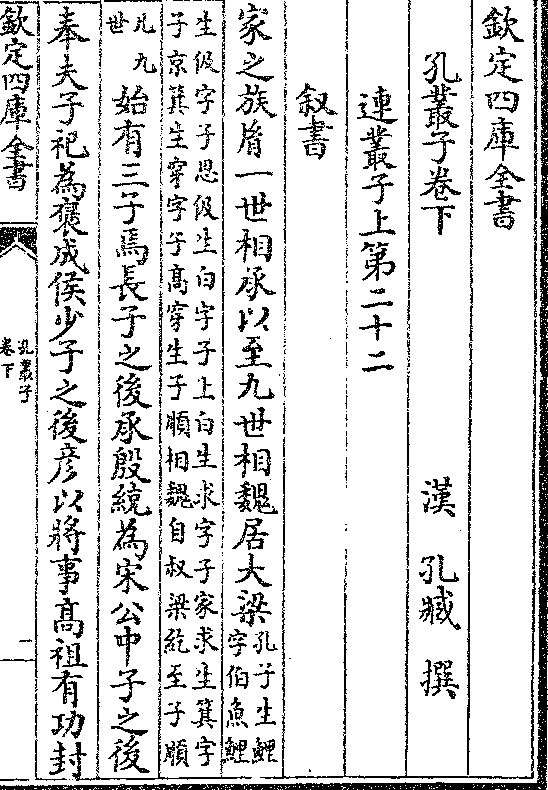 欽定四庫全書
孔叢子卷下
漢　孔臧　撰
連叢子上第二十二
叙書
家之族胤一世相承以至九世相魏居大梁孔子生鯉
字伯魚鯉
生伋字子思伋生白字子上白生求字子家求生箕字
子京箕生穿字子髙穿生子順相魏自叔梁紇至子順
凡九
世
始有三子焉長子之後承殷統為宋公中子之後
奉夫子祀為褒成侯少子之後彦以將事髙祖有功封
欽定四庫全書
孔叢子
卷下
一